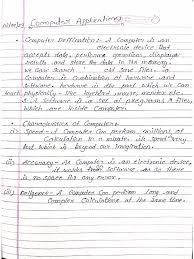 Computer Applications
• Computer Deffination:- A Computer is an
electronic device that
accepts data, performs operations, displays
results and store the data in the memory,
we can search old save files. in
Computer is combination of hardware and
software. hardware is the part which we can
touch physically. like keyboard, mouse, monitor etc.
& A software is a set of programs & files
which are inside Computer.
• Characteristics of Computer:-
(i) Speed:- A Computer can perform millions of
Calculation in a minute. its speed is very
fast which is beyond our imagination.
(ii) Accuracy:- As Computer is an electronic device,
it works from software so so there
is no space for any error.
(iii) Deligence:- A Computer Can perform long and
Complex Calculations at the same time.